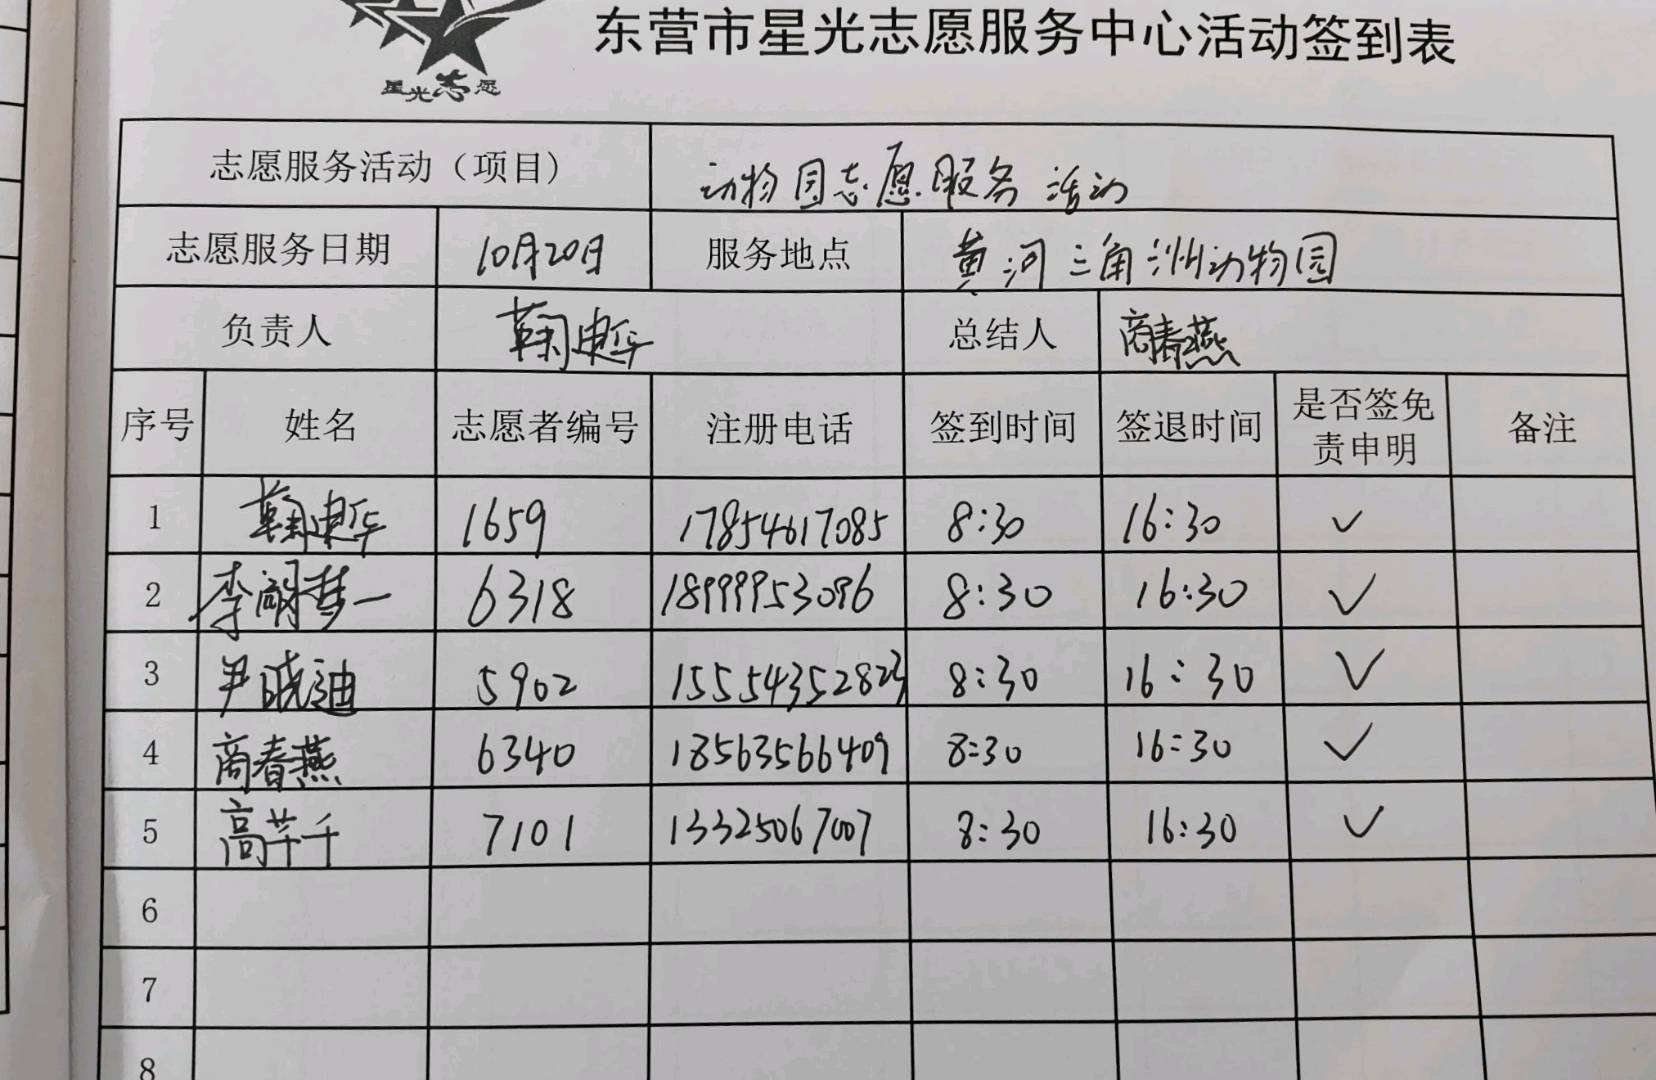 东营市星光志愿服务中心活动签到表
星光志愿
志愿服务活动（项目） 动物园志愿服务活动
志愿服务日期 10月20日 服务地点 黄河三角洲动物园
负责人 总结人 商春燕
序号 姓名 志愿者编号 注册电话 签到时间 签退时间 是否签免责申明 备注
1 1659 17854617085 8:30 16:30 ✓
2 6318 18999953096 8:30 16:30 ✓
3 尹晓迪 5902 15554352823 8:30 16:30 ✓
4 商春燕 6340 18563566409 8:30 16:30 ✓
5 高芊千 7101 13325067007 8:30 16:30 ✓
6
7
8